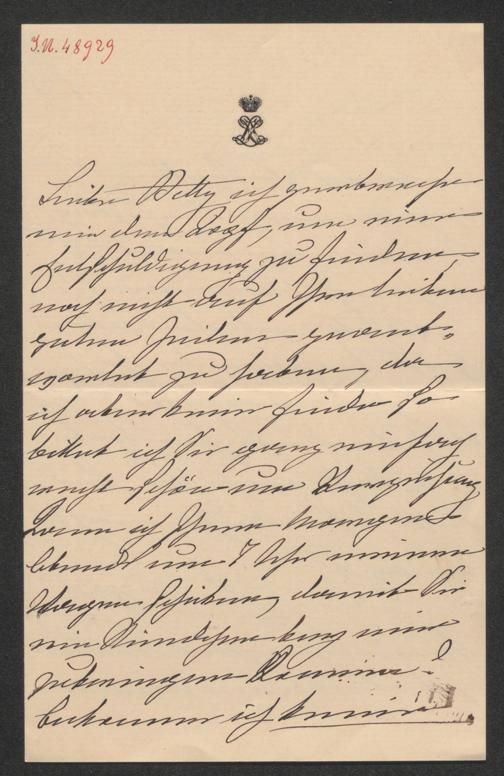 I.N. 48929
Liebe Betty ich zerbreche
mir den Kopf, um eine
Entschuldigung zu finden,
noch nicht auf Ihre lieben
guten Zeilen geant-
wortet zu haben, da
ich aber keine finde so
bittet ich Sie ganz einfach
recht schön um Verzeihung
Kann ich Ihnen morgen
Abend um 7 Uhr meinen
Wagen schicken, damit Sie
ein Stündchen bei mir
zubringen können?
bekomme ich keine